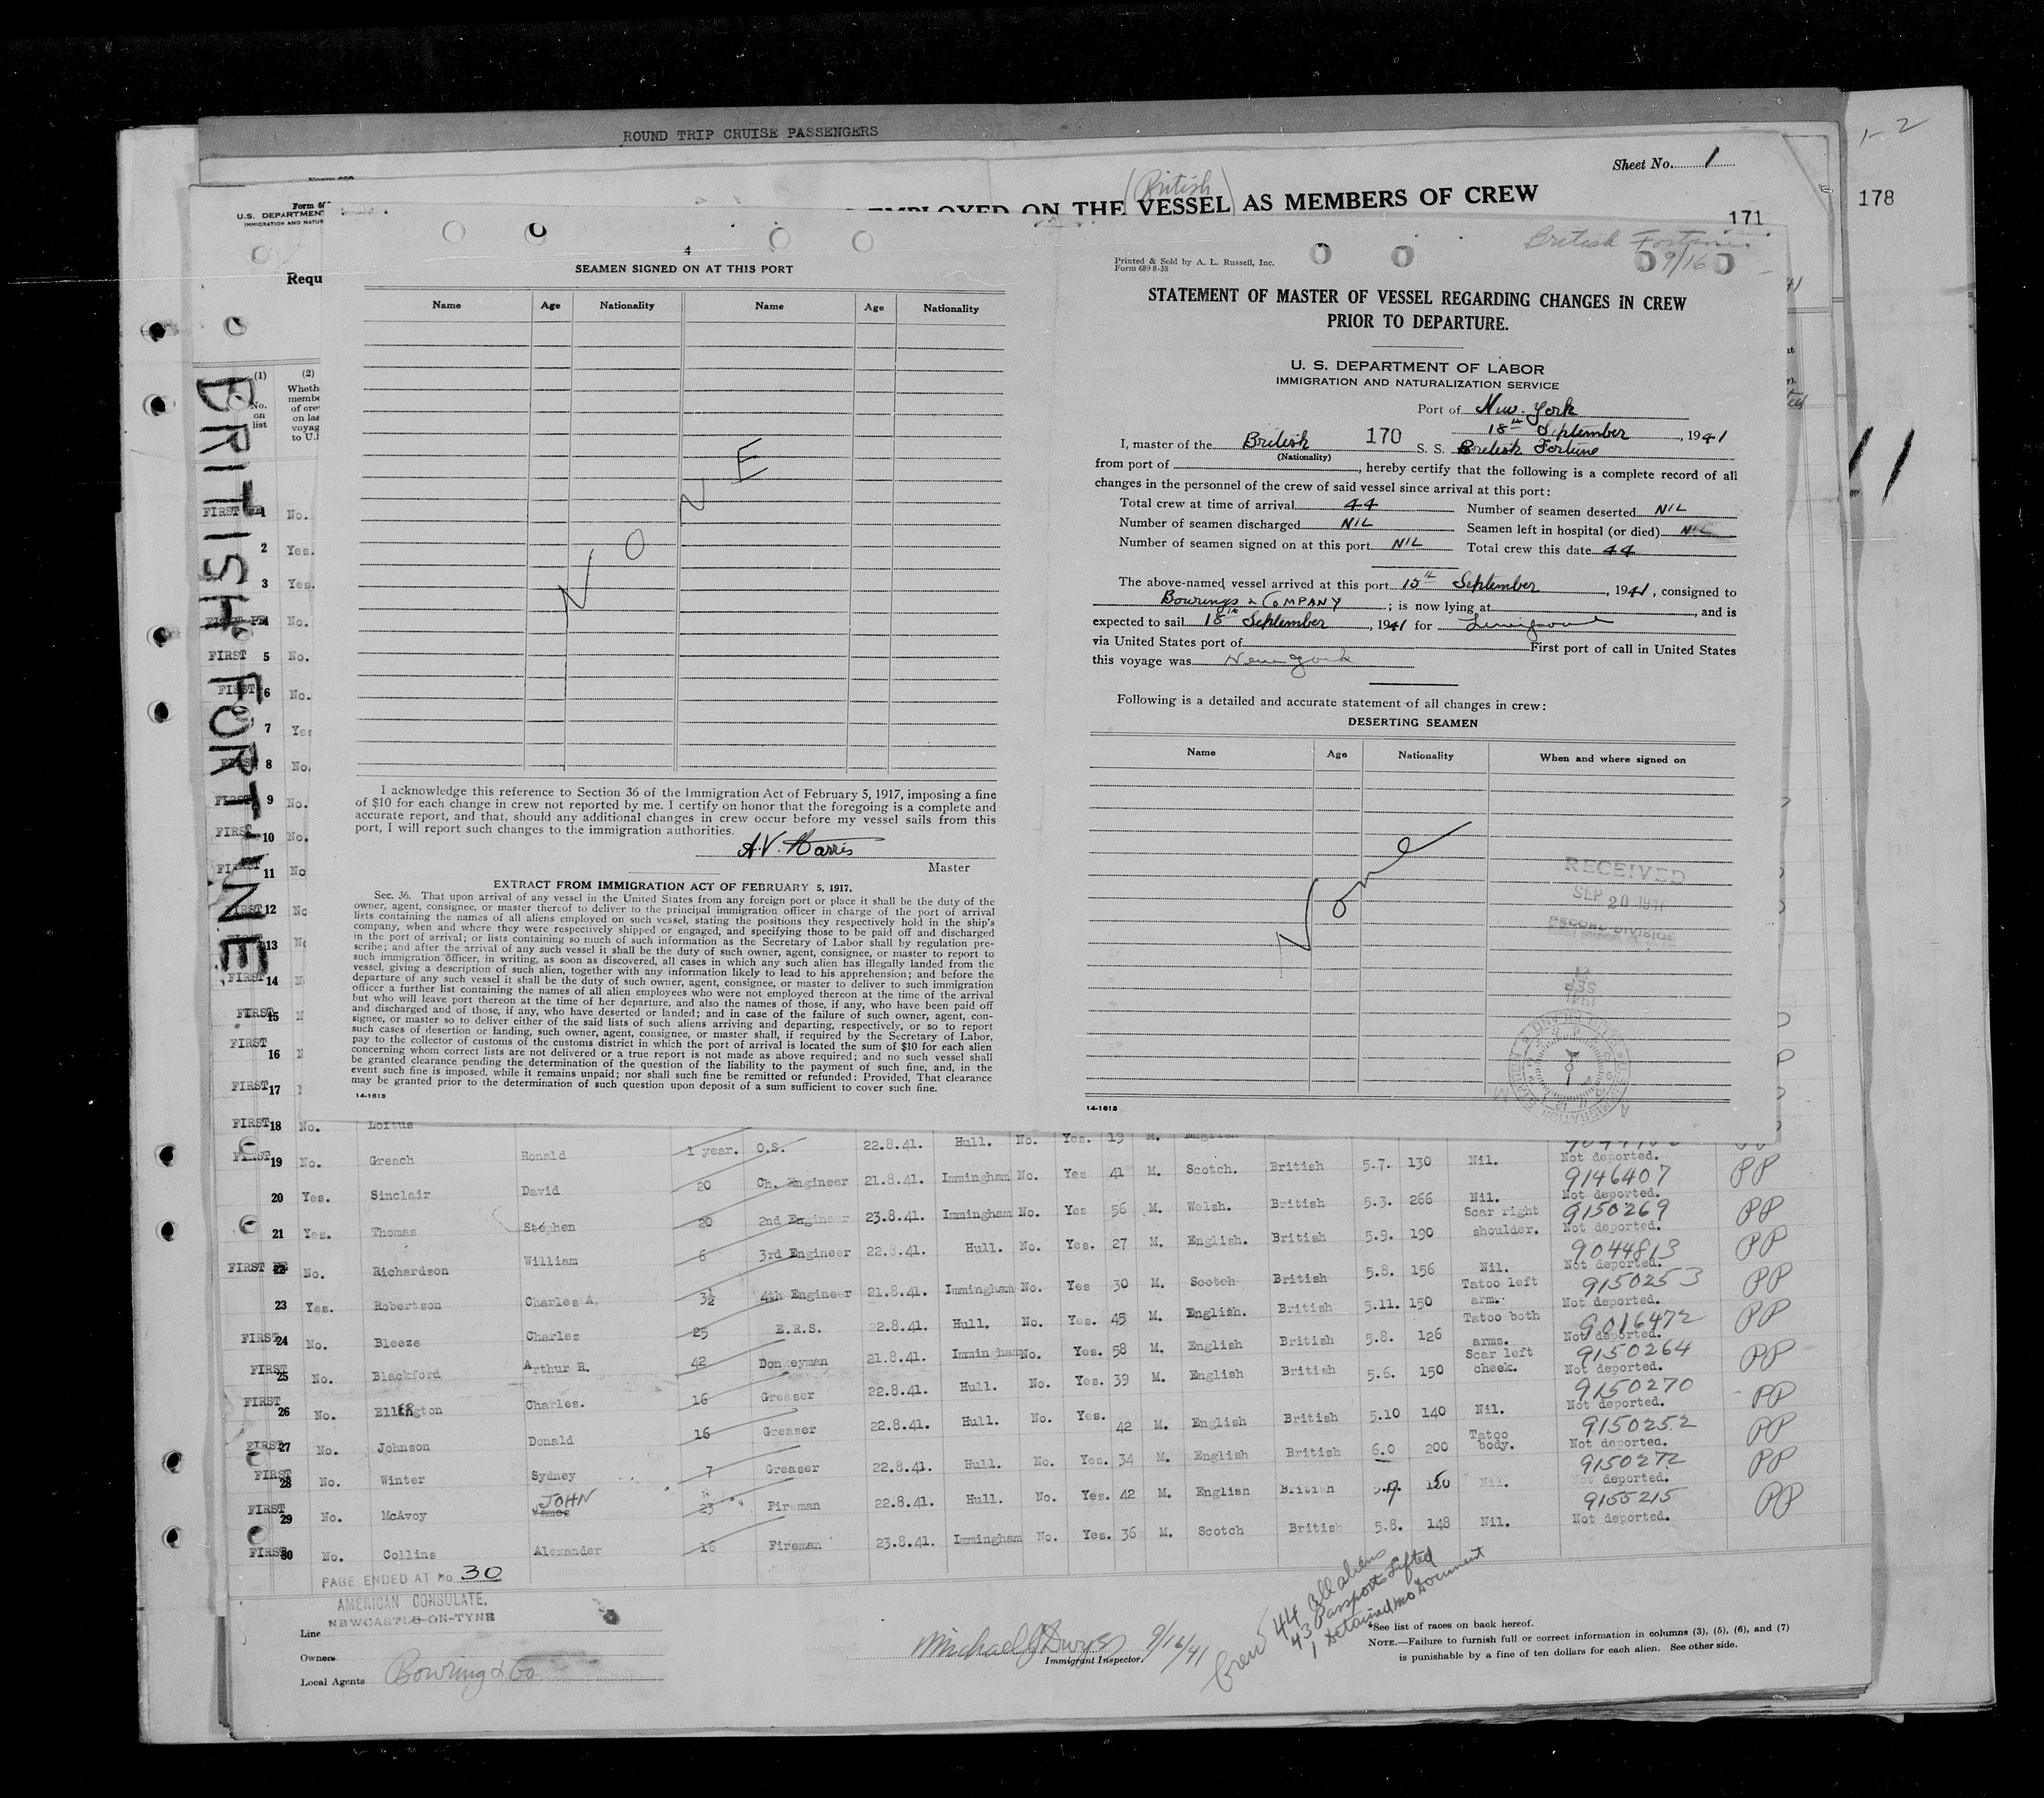 ROUND TRIP CRUISE PASSENGERS
1-2
178
Sheet No. 1
(British)
EMPLOYED ON THE VESSEL AS MEMBERS OF CREW
171
U. S. DEPARTMENT
Requ
(1)
No. on list
(2)
Wheth
memb
of cre
on las
voyag
to U.
BRITISH FORTUNE
4
SEAMEN SIGNED ON AT THIS PORT
Name Age Nationality Name Age Nationality
NONE
I acknowledge this reference to Section 36 of the Immigration Act of February 5, 1917, imposing a fine
of $10 for each change in crew not reported by me. I certify on honor that the foregoing is a complete and
accurate report, and that, should any additional changes in crew occur before my vessel sails from this
port, I will report such changes to the immigration authorities.
A.V. Harris
Master
EXTRACT FROM IMMIGRATION ACT OF FEBRUARY 5, 1917.
Sec. 36. That upon arrival of any vessel in the United States from any foreign port or place it shall be the duty of the
owner, agent, consignee, or master thereof to deliver to the principal immigration officer in charge of the port of arrival
lists containing the names of all aliens employed on such vessel, stating the positions they respectively hold in the ship's
company, when and where they were respectively shipped or engaged, and specifying those to be paid off and discharged
in the port of arrival; or lists containing so much of such information as the Secretary of Labor shall by regulation pre-
scribe; and after the arrival of any such vessel it shall be the duty of such owner, agent, consignee, or master to report to
such immigration officer, in writing, as soon as discovered, all cases in which any such alien has illegally landed from the
vessel, giving a description of such alien, together with any information likely to lead to his apprehension; and before the
departure of any such vessel it shall be the duty of such owner, agent, consignee, or master to deliver to such immigration
officer a further list containing the names of all alien employees who were not employed thereon at the time of the arrival
but who will leave port thereon at the time of her departure, and also the names of those, if any, who have been paid off
and discharged and of those, if any, who have deserted or landed; and in case of the failure of such owner, agent, con-
signee, or master so to deliver either of the said lists of such aliens arriving and departing, respectively, or so to report
such cases of desertion or landing, such owner, agent, consignee, or master shall, if required by the Secretary of Labor,
pay to the collector of customs of the customs district in which the port of arrival is located the sum of $10 for each alien
concerning whom correct lists are not delivered or a true report is not made as above required; and no such vessel shall
be granted clearance pending the determination of the question of the liability to the payment of such fine, and, in the
event such fine is imposed, while it remains unpaid; nor shall such fine be remitted or refunded: Provided, That clearance
may be granted prior to the determination of such question upon deposit of a sum sufficient to cover such fine.
14-1613
British Fortune.
9/16
Printed & Sold by A. L. Russell, Inc.
Form 689 8-38
STATEMENT OF MASTER OF VESSEL REGARDING CHANGES IN CREW
PRIOR TO DEPARTURE.
U. S. DEPARTMENT OF LABOR
IMMIGRATION AND NATURALIZATION SERVICE
Port of New York
18th September, 1941
I, master of the British 170 S. S. British Fortune
(Nationality)
from port of , hereby certify that the following is a complete record of all
changes in the personnel of the crew of said vessel since arrival at this port:
Total crew at time of arrival 44 Number of seamen deserted NIL
Number of seamen discharged NIL Seamen left in hospital (or died) NIL
Number of seamen signed on at this port NIL Total crew this date 44
The above-named vessel arrived at this port 15th September, 1941, consigned to
Bowrings & COMPANY ; is now lying at , and is
expected to sail 18th September, 1941 for
via United States port of First port of call in United States
this voyage was New York
Following is a detailed and accurate statement of all changes in crew:
DESERTING SEAMEN
Name Age Nationality When and where signed on
None
RECEIVED
SEP 20 1941
RECORD DIVISION
14-1613
FIRST 18 No. Loftus
FIRST 19 No. Greach Ronald 1 year. O.S. 22.8.41. Hull. No. Yes. 19 M. English Not deported.
20 Yes. Sinclair David 20 Ch. Engineer 21.8.41. Immingham No. Yes 41 M. Scotch. British 5.7. 130 Nil. 9146407 Not deported. PP
21 Yes. Thomas Stephen 20 2nd Engineer 23.8.41. Immingham No. Yes 56 M. Welsh. British 5.3. 266 Nil. 9150269 Not deported. PP
FIRST 22 No. Richardson William 6 3rd Engineer 22.8.41. Hull. No. Yes. 27 M. English. British 5.9. 190 Scar right shoulder. 9044813 Not deported. PP
23 Yes. Robertson Charles A. 3½ 4th Engineer 21.8.41. Immingham No. Yes 30 M. Scotch British 5.8. 156 Nil. 9150253 Not deported. PP
FIRST 24 No. Bleeze Charles 25 E.R.S. 22.8.41. Hull. No. Yes. 45 M. English. British 5.11. 150 Tatoo left arm. 9016472 Not deported. PP
FIRST 25 No. Blackford Arthur R. 42 Donkeyman 21.8.41. Immingham No. Yes. 58 M. English British 5.8. 126 Tatoo both arms. 9150264 Not deported. PP
FIRST 26 No. Ellington Charles. 16 Greaser 22.8.41. Hull. No. Yes. 39 M. English British 5.6. 150 Scar left cheek. 9150270 Not deported. PP
FIRST 27 No. Johnson Donald 16 Greaser 22.8.41. Hull. No. Yes. 42 M. English British 5.10 140 Nil. 9150252 Not deported. PP
FIRST 28 No. Winter Sydney 7 Greaser 22.8.41. Hull. No. Yes. 34 M. English British 6.0 200 Tatoo body. 9150272 Not deported. PP
FIRST 29 No. McAvoy JOHN James 23 Fireman 22.8.41. Hull. No. Yes. 42 M. English British 5.9. 150 Nil. 9155215 PP
FIRST 30 No. Collins Alexander 16 Fireman 23.8.41. Immingham No. Yes. 36 M. Scotch British 5.8. 148 Nil. Not deported.
PAGE ENDED AT No. 30
AMERICAN CONSULATE,
NEWCASTLE-ON-TYNE
Line
Owners
Local Agents Bowring & Co
9/16/41
Immigrant Inspector.
Crew 44 all aliens
43 Passports Lifted
1 Detained no Document
*See list of races on back hereof.
NOTE.—Failure to furnish full or correct information in columns (3), (5), (6), and (7)
is punishable by a fine of ten dollars for each alien. See other side.